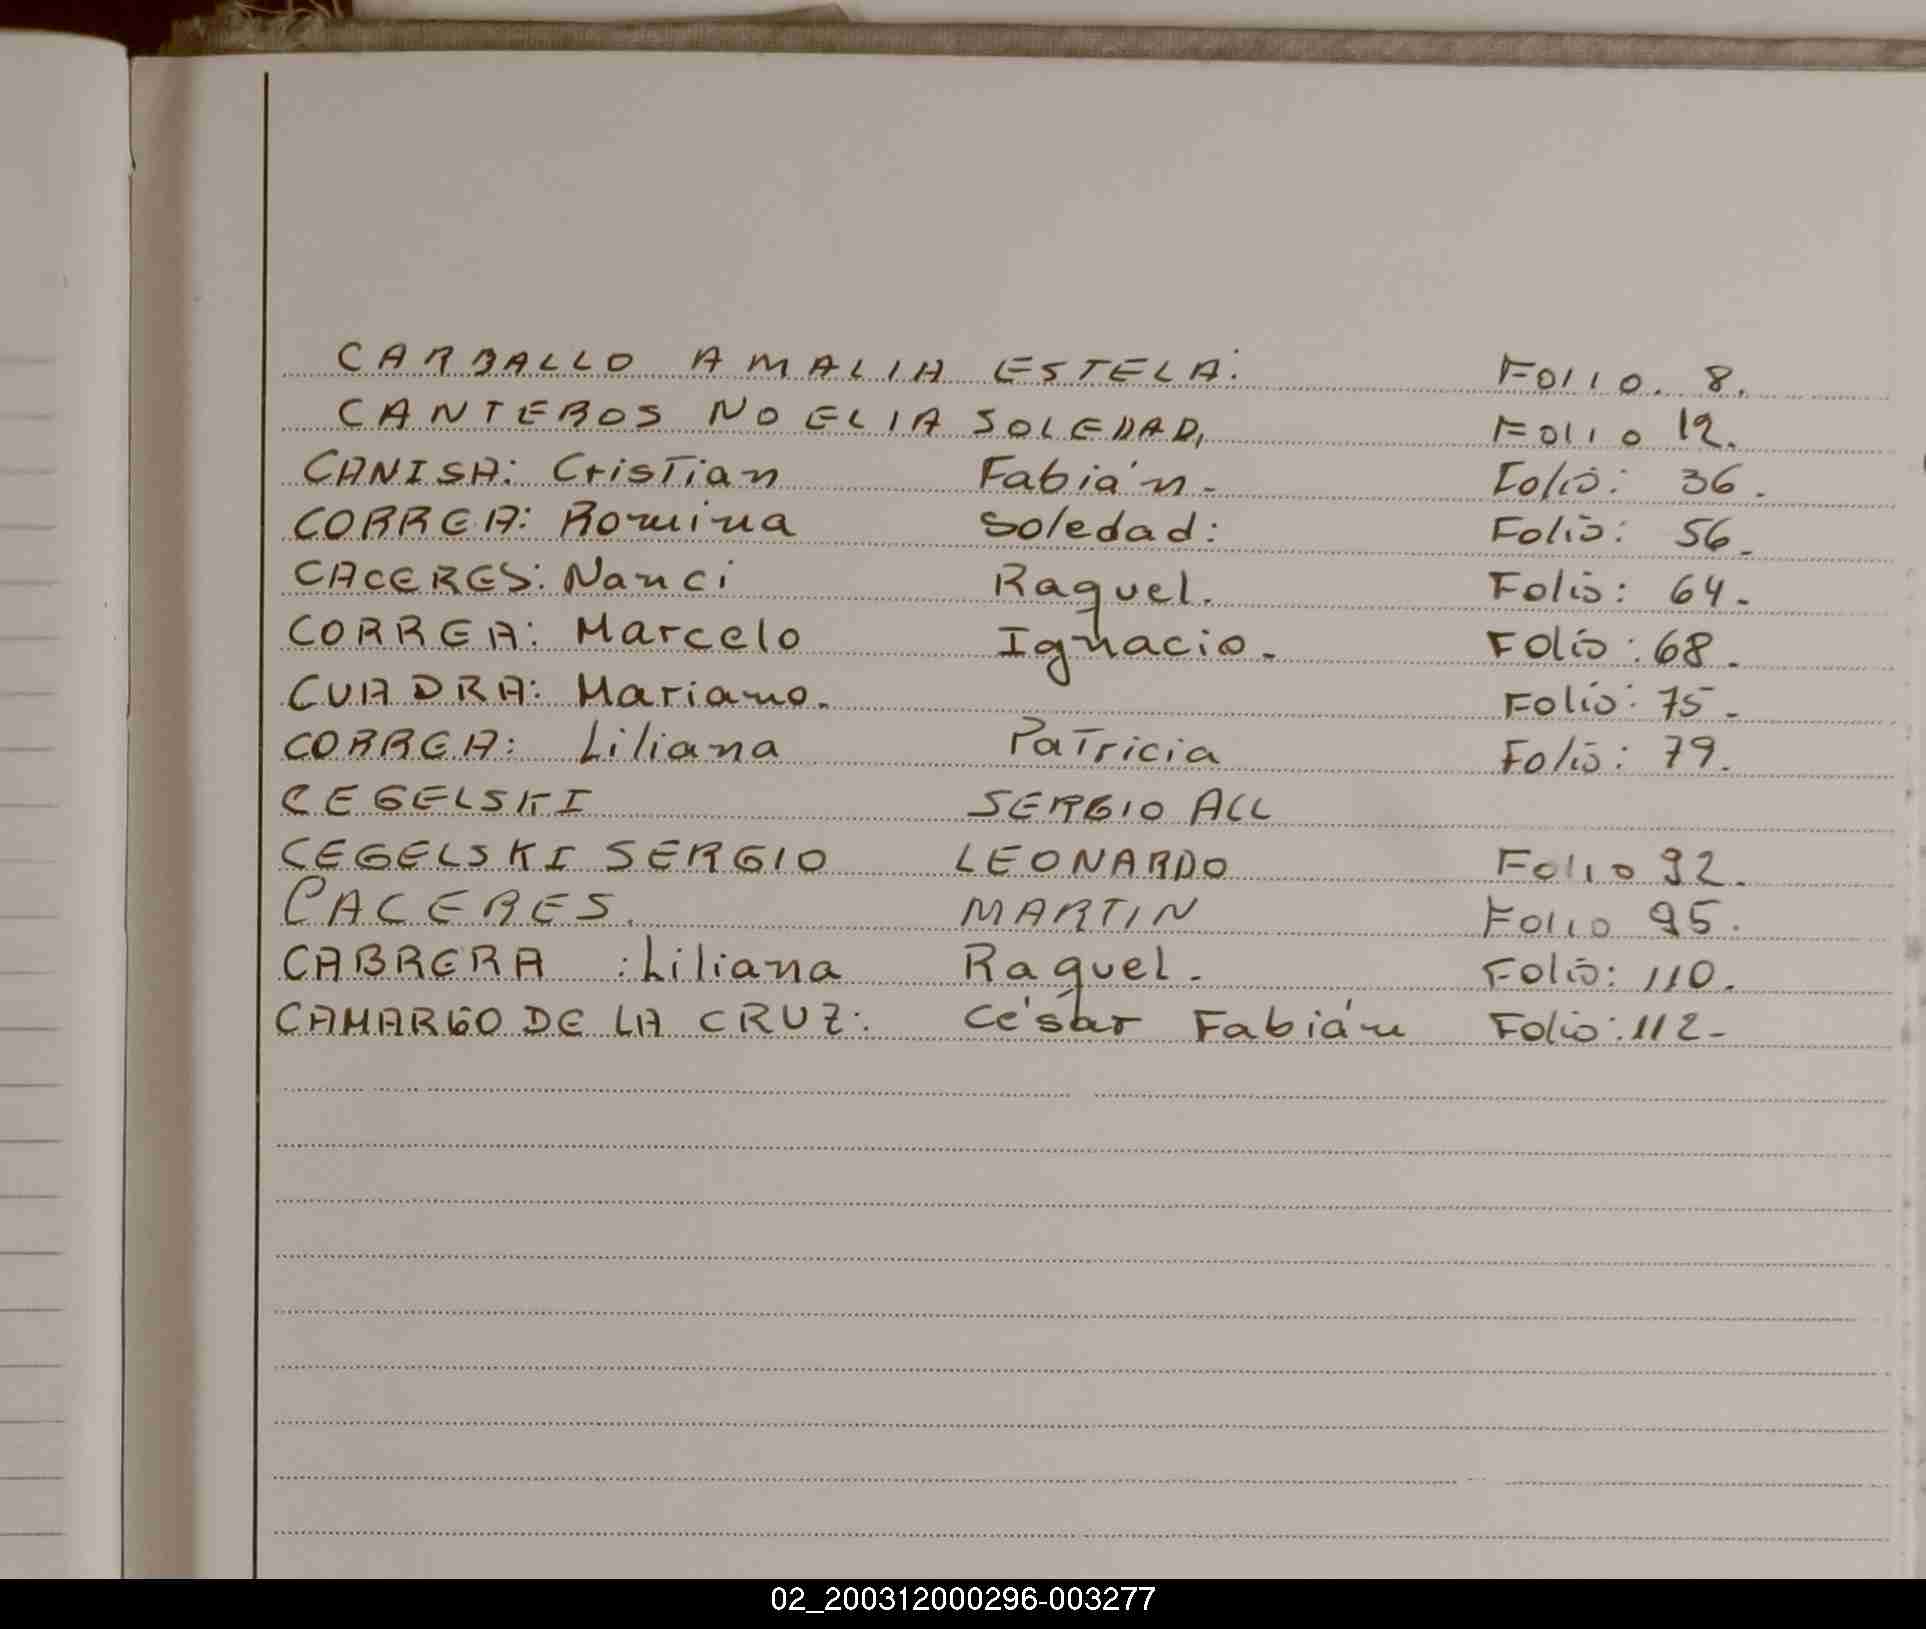 CARBALLO AMALIA ESTELA: FOLIO. 8.
CANTEROS NOELIA SOLEDAD, FOLIO 12.
CANISA: Cristian Fabián. Folio: 36.
CORREA: Romina Soledad: Folio: 56.
CACERES: Nanci Raquel. Folio: 64.
CORREA: Marcelo Ignacio. Folio: 68.
CUADRA: Mariano. Folio: 75.
CORREA: Liliana Patricia Folio: 79.
CEGELSKI SERGIO ALL
CEGELSKI SERGIO LEONARDO FOLIO 92.
CACERES. MARTIN FOLIO 95.
CABRERA : Liliana Raquel. Folio: 110.
CAMARGO DE LA CRUZ: César Fabián Folio: 112-
02_200312000296-003277